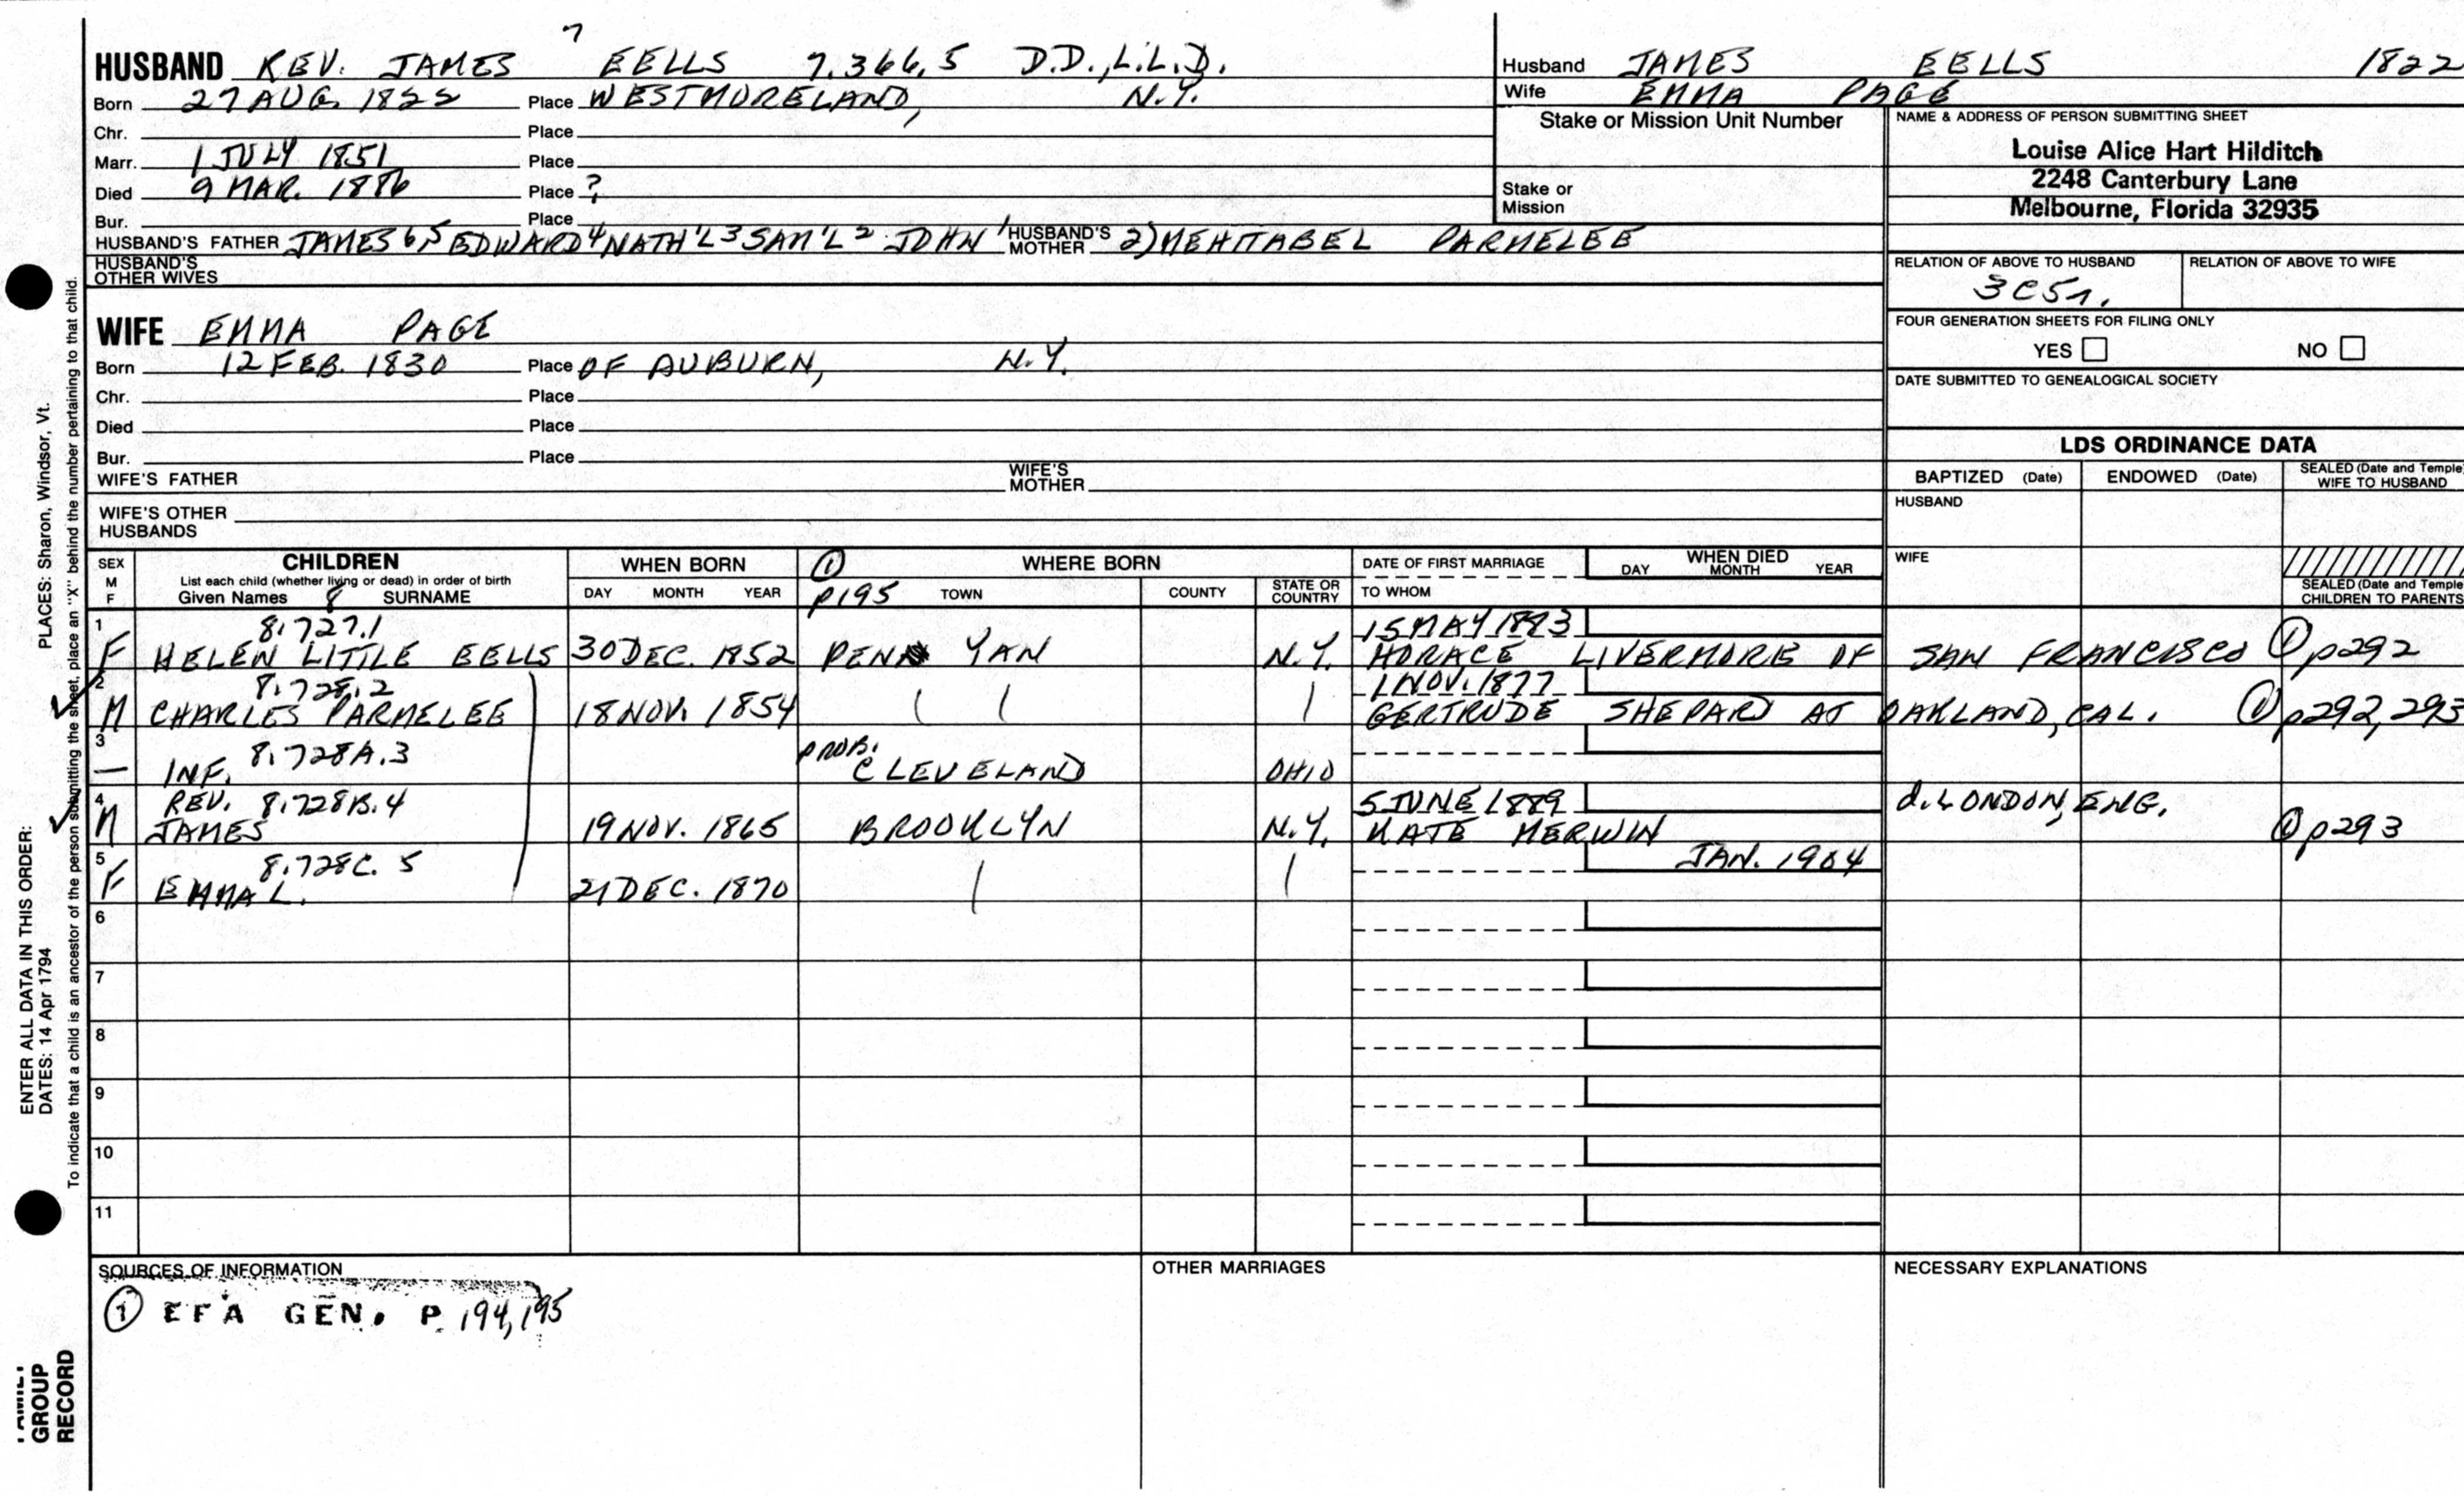 7
HUSBAND REV. JAMES EELLS 7.366.5 D.D., L.L.D.
Born 27 AUG. 1822 Place WESTMORELAND, N.Y.
Chr. Place
Marr. 1 JULY 1851 Place
Died 9 MAR. 1886 Place ?
Bur. Place
HUSBAND'S FATHER JAMES 6, 5 EDWARD 4 NATH'L 3 SAM'L 2 JOHN 1 HUSBAND'S MOTHER 2) MEHITABEL PARMELEE
HUSBAND'S OTHER WIVES
Husband JAMES EELLS 1822
Wife EMMA PAGE
Stake or Mission Unit Number
Stake or Mission
NAME & ADDRESS OF PERSON SUBMITTING SHEET
Louise Alice Hart Hilditch
2248 Canterbury Lane
Melbourne, Florida 32935
RELATION OF ABOVE TO HUSBAND RELATION OF ABOVE TO WIFE
3C5r.
FOUR GENERATION SHEETS FOR FILING ONLY
YES NO
DATE SUBMITTED TO GENEALOGICAL SOCIETY
WIFE EMMA PAGE
Born 12 FEB. 1830 Place OF AUBURN, N.Y.
Chr. Place
Died Place
Bur. Place
WIFE'S FATHER WIFE'S MOTHER
WIFE'S OTHER HUSBANDS
LDS ORDINANCE DATA
BAPTIZED (Date) ENDOWED (Date) SEALED (Date and Temple) WIFE TO HUSBAND
HUSBAND
WIFE
SEALED (Date and Temple) CHILDREN TO PARENTS
SEX M F CHILDREN WHEN BORN ① WHERE BORN DATE OF FIRST MARRIAGE WHEN DIED
List each child (whether living or dead) in order of birth
Given Names 8 SURNAME DAY MONTH YEAR p195 TOWN COUNTY STATE OR COUNTRY TO WHOM DAY MONTH YEAR
1 8.727.1 15 MAY 1873
F HELEN LITTLE EELLS 30 DEC. 1852 PENN YAN N.Y. HORACE LIVERMORE OF SAN FRANCISCO ① p292
2 8.728.2 1 NOV. 1877
M CHARLES PARMELEE 18 NOV. 1854 GERTRUDE SHEPARD AT OAKLAND, CAL. ① p292, 293
3 8.728A.3 PROB.
— INF. CLEVELAND OHIO
4 REV. 8.728B.4 5 JUNE 1889 d. LONDON, ENG.
M JAMES 19 NOV. 1865 BROOKLYN N.Y. KATE MERWIN ① p293
5 8.728C.5 JAN. 1904
F EMMA L. 21 DEC. 1870
6
7
8
9
10
11
SOURCES OF INFORMATION OTHER MARRIAGES NECESSARY EXPLANATIONS
① EFA GEN. P. 194, 195
ENTER ALL DATA IN THIS ORDER:
DATES: 14 Apr 1794 PLACES: Sharon, Windsor, Vt.
To indicate that a child is an ancestor of the person submitting the sheet, place an "X" behind the number pertaining to that child.
FAMILY
GROUP
RECORD